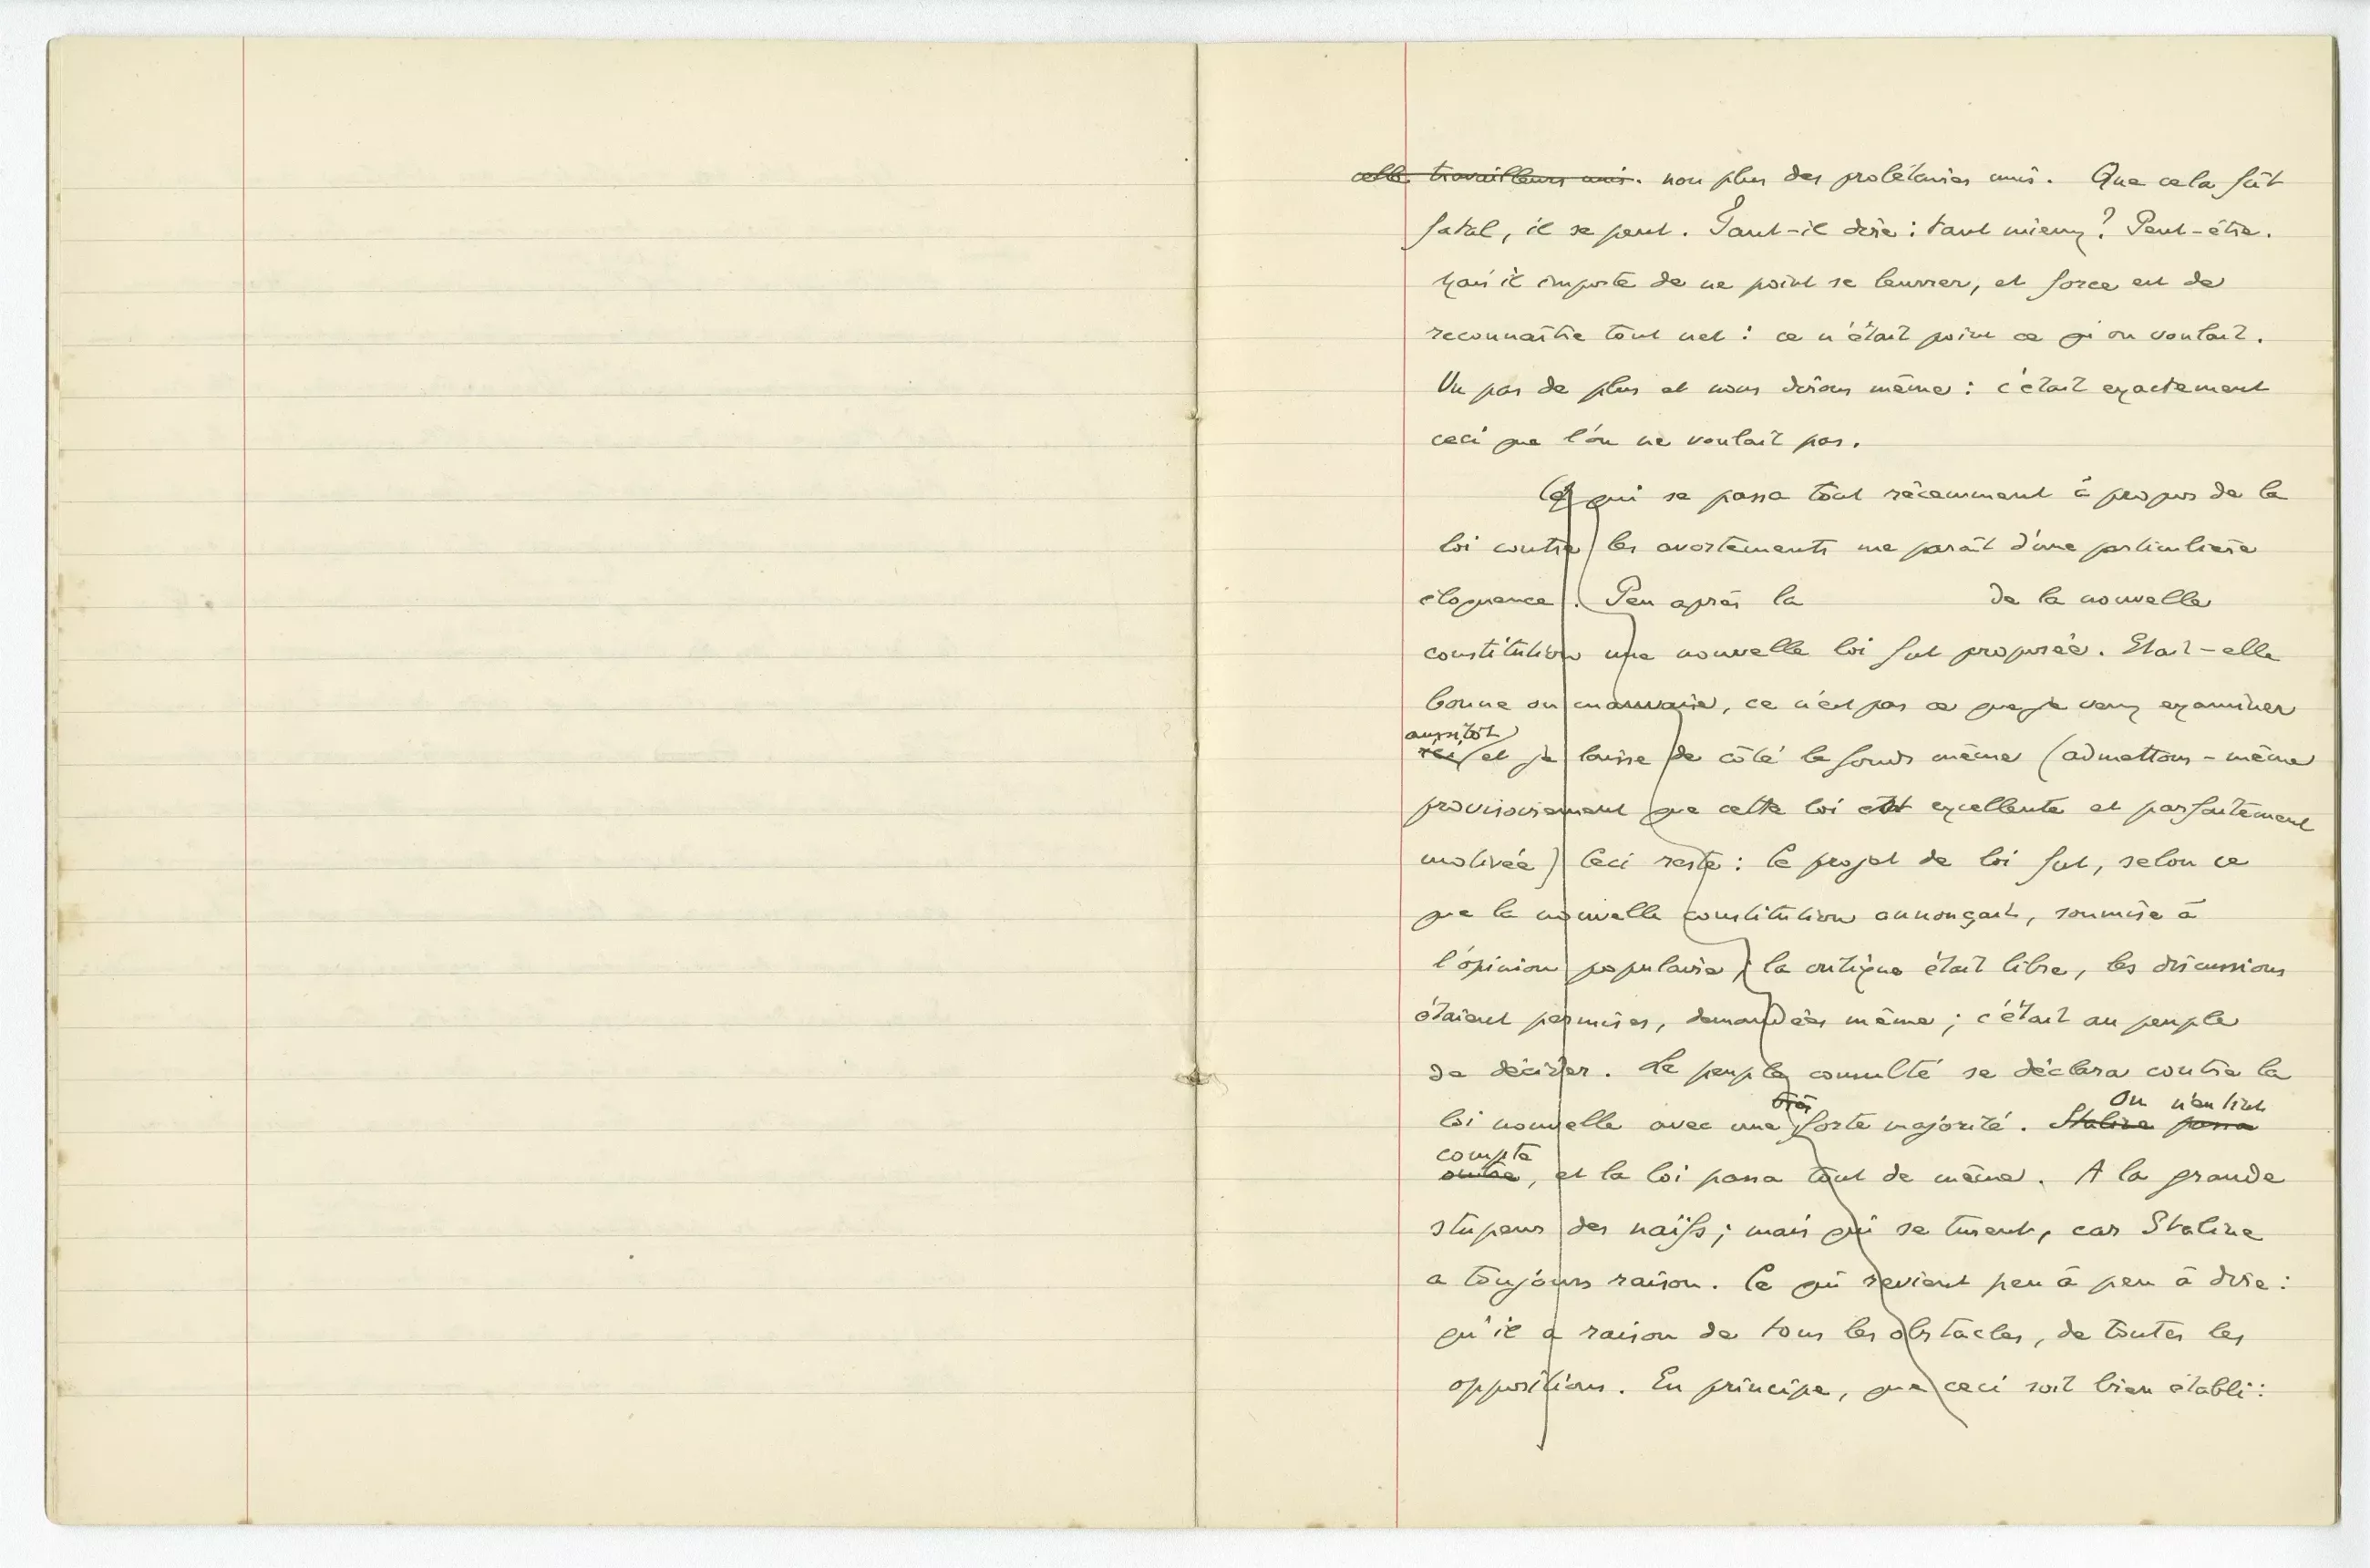 celle travailleurs unis. non plus des prolétaires unis. Que cela fût
fatal, il se peut. Faut-il dire : tant mieux ? Peut-être.
Mais il importe de ne point se leurrer, et force est de
reconnaître tout net : ce n'était point ce qu'on voulait.
Un pas de plus et nous dirons même : c'était exactement
ceci que l'on ne voulait pas.
Ce qui se passa tout récemment à propos de la
loi contre les avortements me paraît d'une particulière
éloquence. Peu après la de la nouvelle
constitution une nouvelle loi fut proposée. Etait-elle
bonne ou mauvaise, ce n'est pas ce que je veux examiner
aussitôt
ici et je laisse de côté le fonds même (admettons-même
provisoirement que cette loi est excellente et parfaitement
motivée) Ceci reste : le projet de loi fut, selon ce
que la nouvelle constitution annonçait, soumise à
l'opinion populaire ; la critique était libre, les discussions
étaient permises, demandées même ; c'était au peuple
de décider. Le peuple consulté se déclara contre la
très On n'en tint
loi nouvelle avec une forte majorité. Staline passa
compte
outre, et la loi passa tout de même. A la grande
stupeur des naïfs ; mais qui se turent, car Staline
a toujours raison. Ce qui revient peu à peu à dire :
qu'il a raison de tous les obstacles, de toutes les
oppositions. En principe, que ceci soit bien établi :